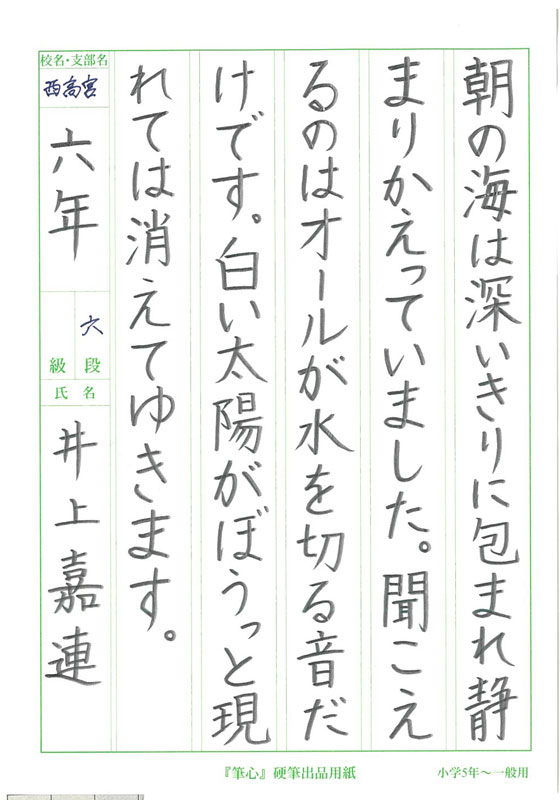 朝の海は深いきりに包まれ静
まりかえっていました。聞こえ
るのはオールが水を切る音だ
けです。白い太陽がぼうっと現
れては消えてゆきます。
校名・支部名
西高宮
六年
六
段
級
氏名
井上嘉連
『筆心』硬筆出品用紙
小学5年〜一般用